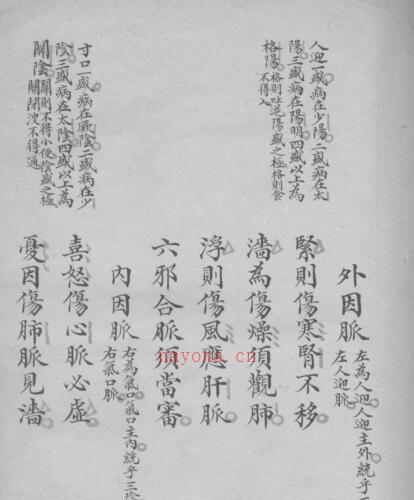 人迎一盛病在少陽二盛病在太
陽三盛病在陽明四盛以上為
格陽格則吐逆陽盛之極格則食
不得入
寸口一盛病在厥陰二盛病在少
陰三盛病在太陰四盛以上為
關陰關則不得小便陰盛之極
關閉溲不得通
外因脈左為人迎人迎主外統乎
左人迎脈
緊則傷寒腎不移
濇為傷燥須觀肺
浮則傷風應肝脈
六邪合脈須當審
內因脈右為氣口氣口主內統乎三陰
右氣口脈
喜怒傷心脈必虛
憂因傷肺脈見濇
nayona.cn